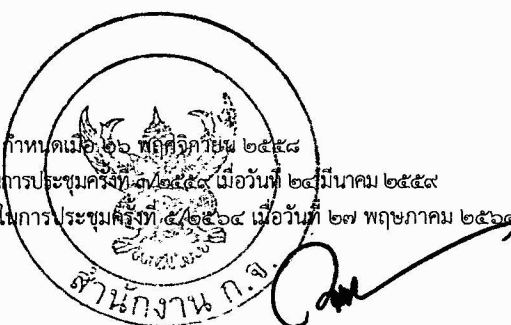 กำหนดเมื่อ ๒๖ พฤศจิกายน ๒๕๕๘
การประชุมครั้งที่ ๓/๒๕๕๙ เมื่อวันที่ ๒๔ มีนาคม ๒๕๕๙
ในการประชุมครั้งที่ ๕/๒๕๖๔ เมื่อวันที่ ๒๗ พฤษภาคม ๒๕๖๔
สำนักงาน ก.จ.